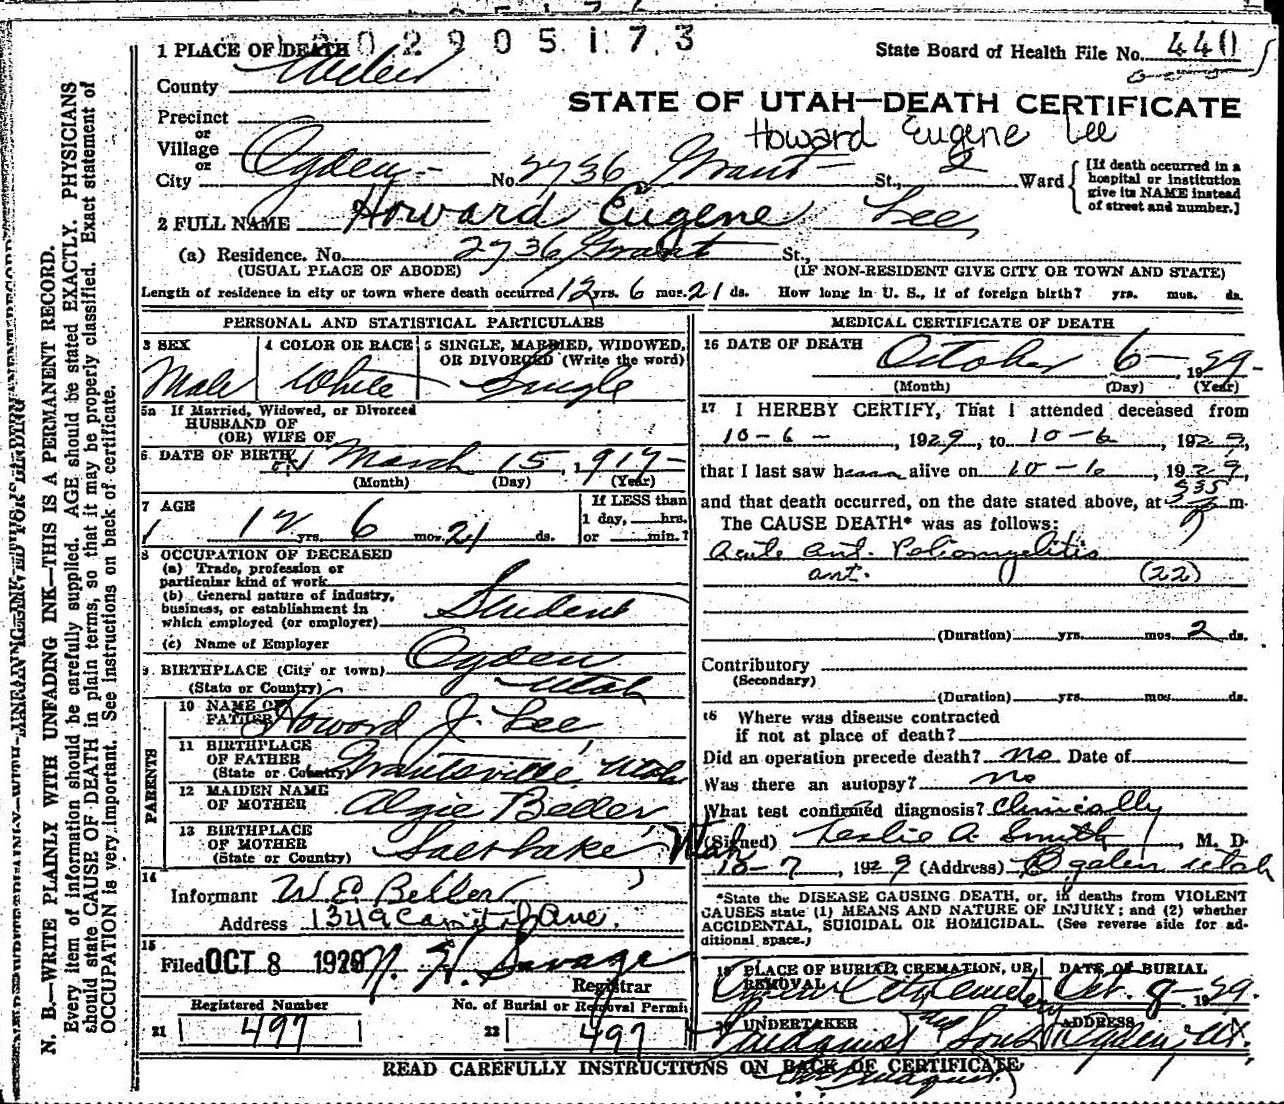 1 2 0 2 9 0 5 1 7 3
1 PLACE OF DEATH
State Board of Health File No. 440
County Weber
STATE OF UTAH—DEATH CERTIFICATE
Howard Eugene Lee
Precinct
or
Village
or
City Ogden No. 2736 Grant St., 2 Ward
[If death occurred in a
hospital or institution
give its NAME instead
of street and number.]
2 FULL NAME Howard Eugene Lee
(a) Residence. No. 2736 Grant St.,
(USUAL PLACE OF ABODE) (IF NON-RESIDENT GIVE CITY OR TOWN AND STATE)
Length of residence in city or town where death occurred 12 yrs. 6 mos. 21 ds. How long in U. S., if of foreign birth? yrs. mos. ds.
PERSONAL AND STATISTICAL PARTICULARS
3 SEX
Male
4 COLOR OR RACE
White
5 SINGLE, MARRIED, WIDOWED,
OR DIVORCED (Write the word)
Single
5a If Married, Widowed, or Divorced
HUSBAND OF
(OR) WIFE OF
6 DATE OF BIRTH March 15, 1917
(Month) (Day) (Year)
7 AGE
12 yrs. 6 mos. 21 ds.
If LESS than
1 day, hrs.
or min.?
8 OCCUPATION OF DECEASED
(a) Trade, profession or
particular kind of work
(b) General nature of industry,
business, or establishment in
which employed (or employer) Student
(c) Name of Employer
9 BIRTHPLACE (City or town) Ogden
(State or Country) Utah
PARENTS
10 NAME OF
FATHER Howard J. Lee
11 BIRTHPLACE
OF FATHER
(State or Country) Grantsville, Utah
12 MAIDEN NAME
OF MOTHER Algie Beller
13 BIRTHPLACE
OF MOTHER
(State or Country) Salt Lake, Utah
14
Informant W E Beller
Address 1349 Canyon Ave.
15
Filed OCT 8 1929 Savage
Registrar
Registered Number
21 497
No. of Burial or Removal Permit
22 497
MEDICAL CERTIFICATE OF DEATH
16 DATE OF DEATH October 6 — 1929
(Month) (Day) (Year)
17 I HEREBY CERTIFY, That I attended deceased from
10-6-, 1929, to 10-6, 1929,
that I last saw h alive on 10-6, 1929,
and that death occurred, on the date stated above, at 535 m.
The CAUSE DEATH* was as follows:
Acute Ant. Poliomyelitis
ant. (22)
(Duration) yrs. mos. 2 ds.
Contributory
(Secondary)
(Duration) yrs. mos. ds.
18 Where was disease contracted
if not at place of death?
Did an operation precede death? no Date of
Was there an autopsy? no
What test confirmed diagnosis? clinically
(Signed) Leslie A. Smith, M. D.
10-7, 1929 (Address) Ogden Utah
*State the DISEASE CAUSING DEATH, or, in deaths from VIOLENT
CAUSES state (1) MEANS AND NATURE OF INJURY; and (2) whether
ACCIDENTAL, SUICIDAL OR HOMICIDAL. (See reverse side for ad-
ditional space.)
19 PLACE OF BURIAL, CREMATION, OR
REMOVAL
Ogden City Cemetery
DATE OF BURIAL
Oct. 8 - 1929.
20 UNDERTAKER
Lindquist and Sons
ADDRESS
Ogden, Ut.
READ CAREFULLY INSTRUCTIONS ON BACK OF CERTIFICATE
N. B.—WRITE PLAINLY WITH UNFADING INK—THIS IS A PERMANENT RECORD.
Every item of information should be carefully supplied. AGE should be stated EXACTLY. PHYSICIANS
should state CAUSE OF DEATH in plain terms, so that it may be properly classified. Exact statement of
OCCUPATION is very important. See instructions on back of certificate.